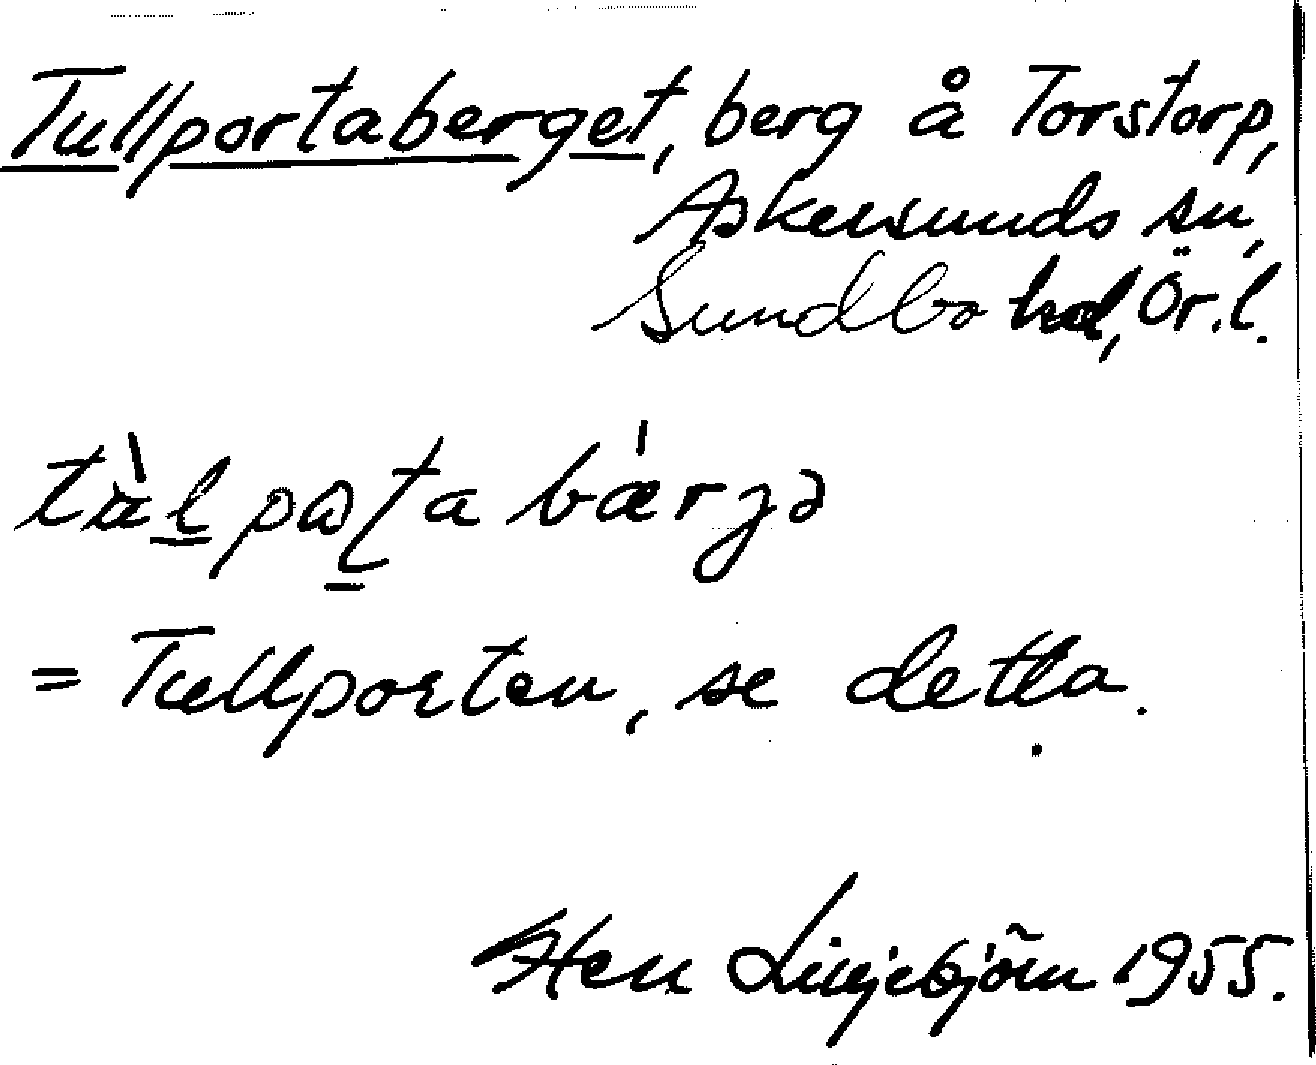 Tullportaberget, berg å Torstorp,
Askersunds sn,
Sundbo hd, Ör.l.
= Tullporten, se detta.
Sten Liljebjörn 1955.